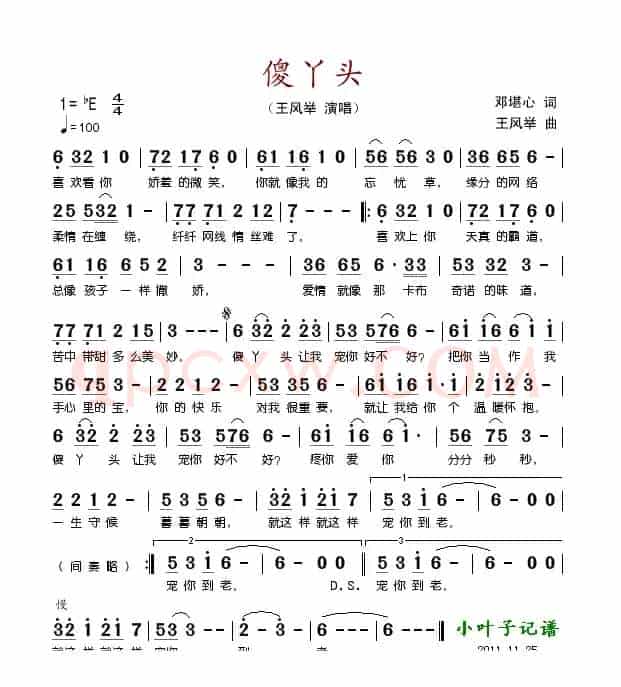 傻丫头
1=♭E 4/4
（王风举 演唱）
邓堪心 词
♩=100
王风举 曲
6 32 1 0 | 72 17 6 0 | 61 16 1 0 | 56 56 3 0 | 36 65 6 - |
喜 欢看 你 娇羞 的微 笑， 你就 像我 的 忘 忧 草， 缘分 的网 络
25 532 1 - | 77 71 2 12 | 1 - - 0 |: 6 32 1 0 | 72 17 6 0 |
柔情 在缠 绕， 纤纤 网线 情 丝难 了。 喜 欢上 你 天真 的霸 道，
61 16 3 652 | 3 - - 0 | 36 65 6 · 33 | 25 532 1 - |
总像 孩子 一 样撒 娇， 爱情 就像 那 卡布 奇诺 的味 道，
77 71 2 15 | 2 - - - | 6 32 2 23 | 53 576 6 - | 61 16 6 1 |
苦中 带甜 多 么美 妙。 傻 丫 头 让我 宠你 好不 好？ 把你 当 作 我
56 75 3 - | 61 16 6 - | 61 16 1 · 1 | 2 11 2 1 - |
手心 里的 宝， 你 的快 乐 对我 很重 要， 就让 我给 你 个 温 暖怀 抱。
6 32 2 23 | 53 576 6 - | 61 16 2 - | 56 75 3 - |
傻 丫 头 让我 宠你 好不 好？ 疼你 爱 你 分分 秒 秒，
2 2 1 2 - | 5 3 5 6 - | 32 1 21 7 | 5 3 1 6 | 6 - 0 0
一 生 守 候 暮 暮 朝 朝， 就这 样 就这 样 宠 你 到 老。
（间奏略） :| 5 3 1 6 | 6 - 0 0 | 5 3 1 6 | 6 - 0 0 |
宠 你 到 老， D.S. 宠 你 到 老。
慢
32 1 21 7 | 5 3 1 - | 6 - - - | 6 - - 0 |
小叶子记谱
qpcxw.COM